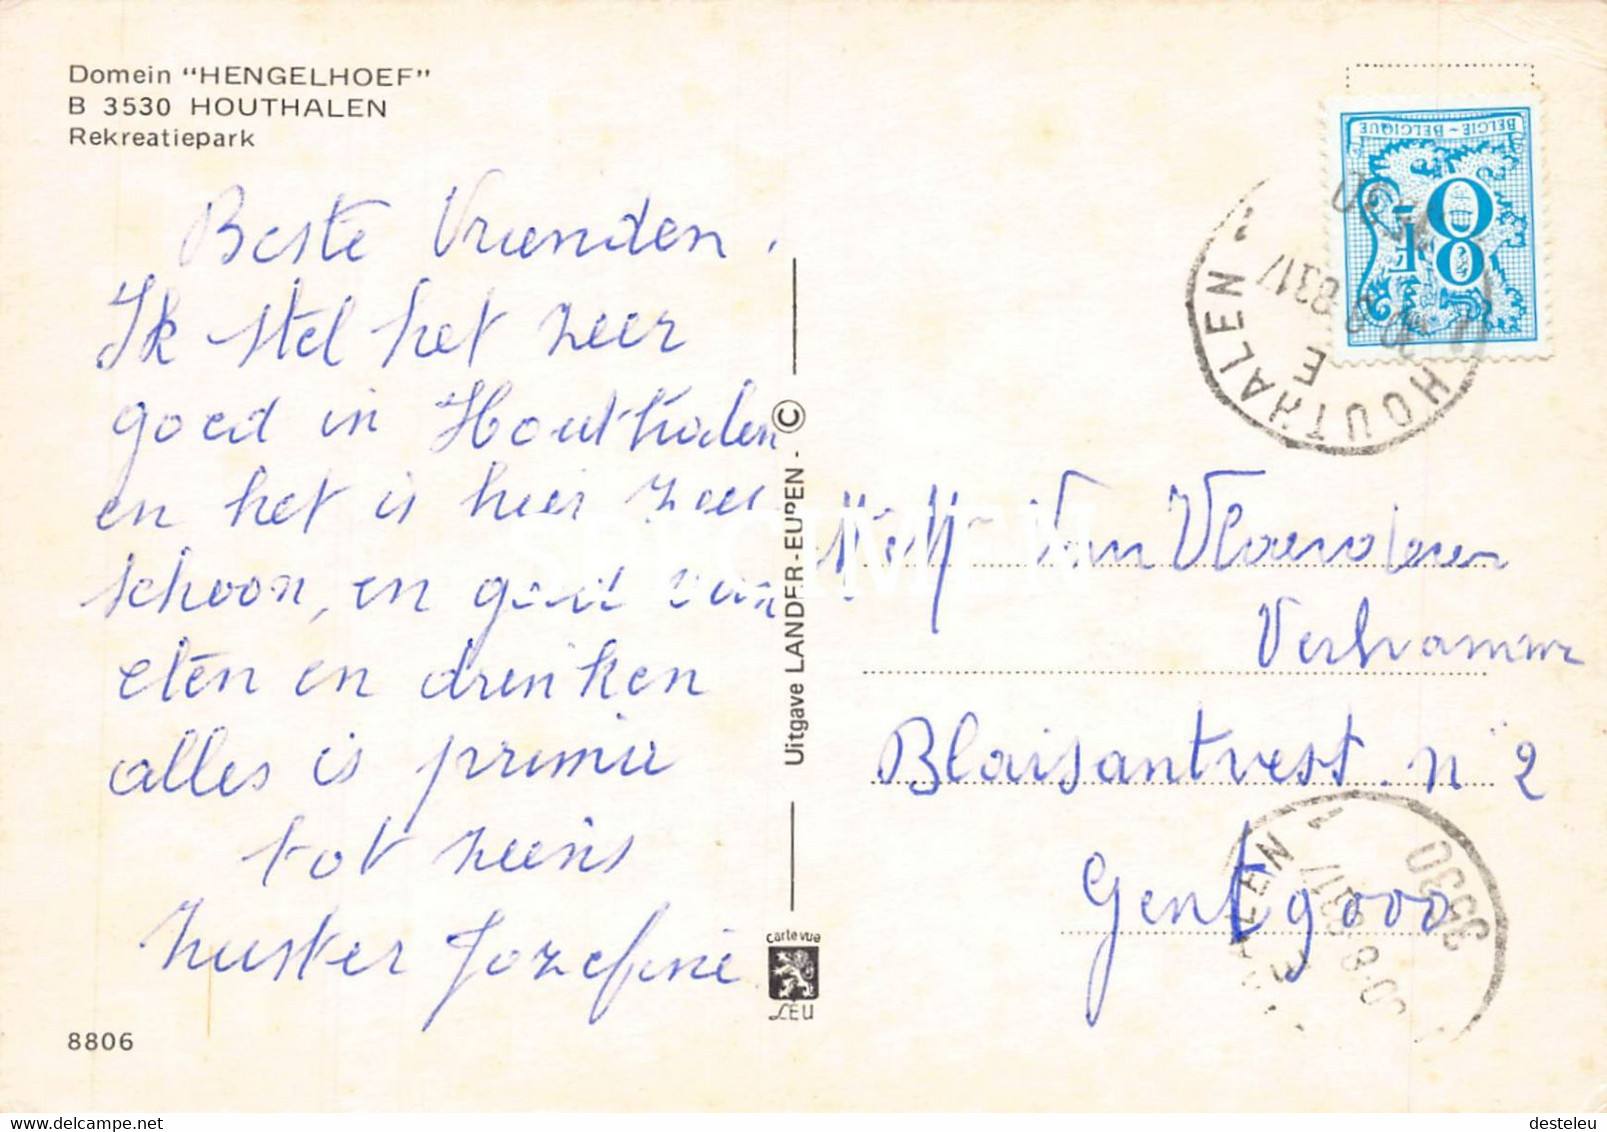 Domein "HENGELHOEF"
B 3530 HOUTHALEN
Rekreatiepark
Beste Vrienden.
Ik stel het zeer
goed in Houthalen
en het is hier zeer
schoon, en goed van
eten en drinken
alles is primie
tot ziens
zuster Jozefine
8806
Uitgave LANDER-EUPEN - ©
carte vue
LEU
BELGIE - BELGIQUE
8F
HOUTHALEN
E
Van Vlaenderen
Blaisantvest n° 2
Gent 9000
3530
SPECIMEN
www.delcampe.net
desteleu